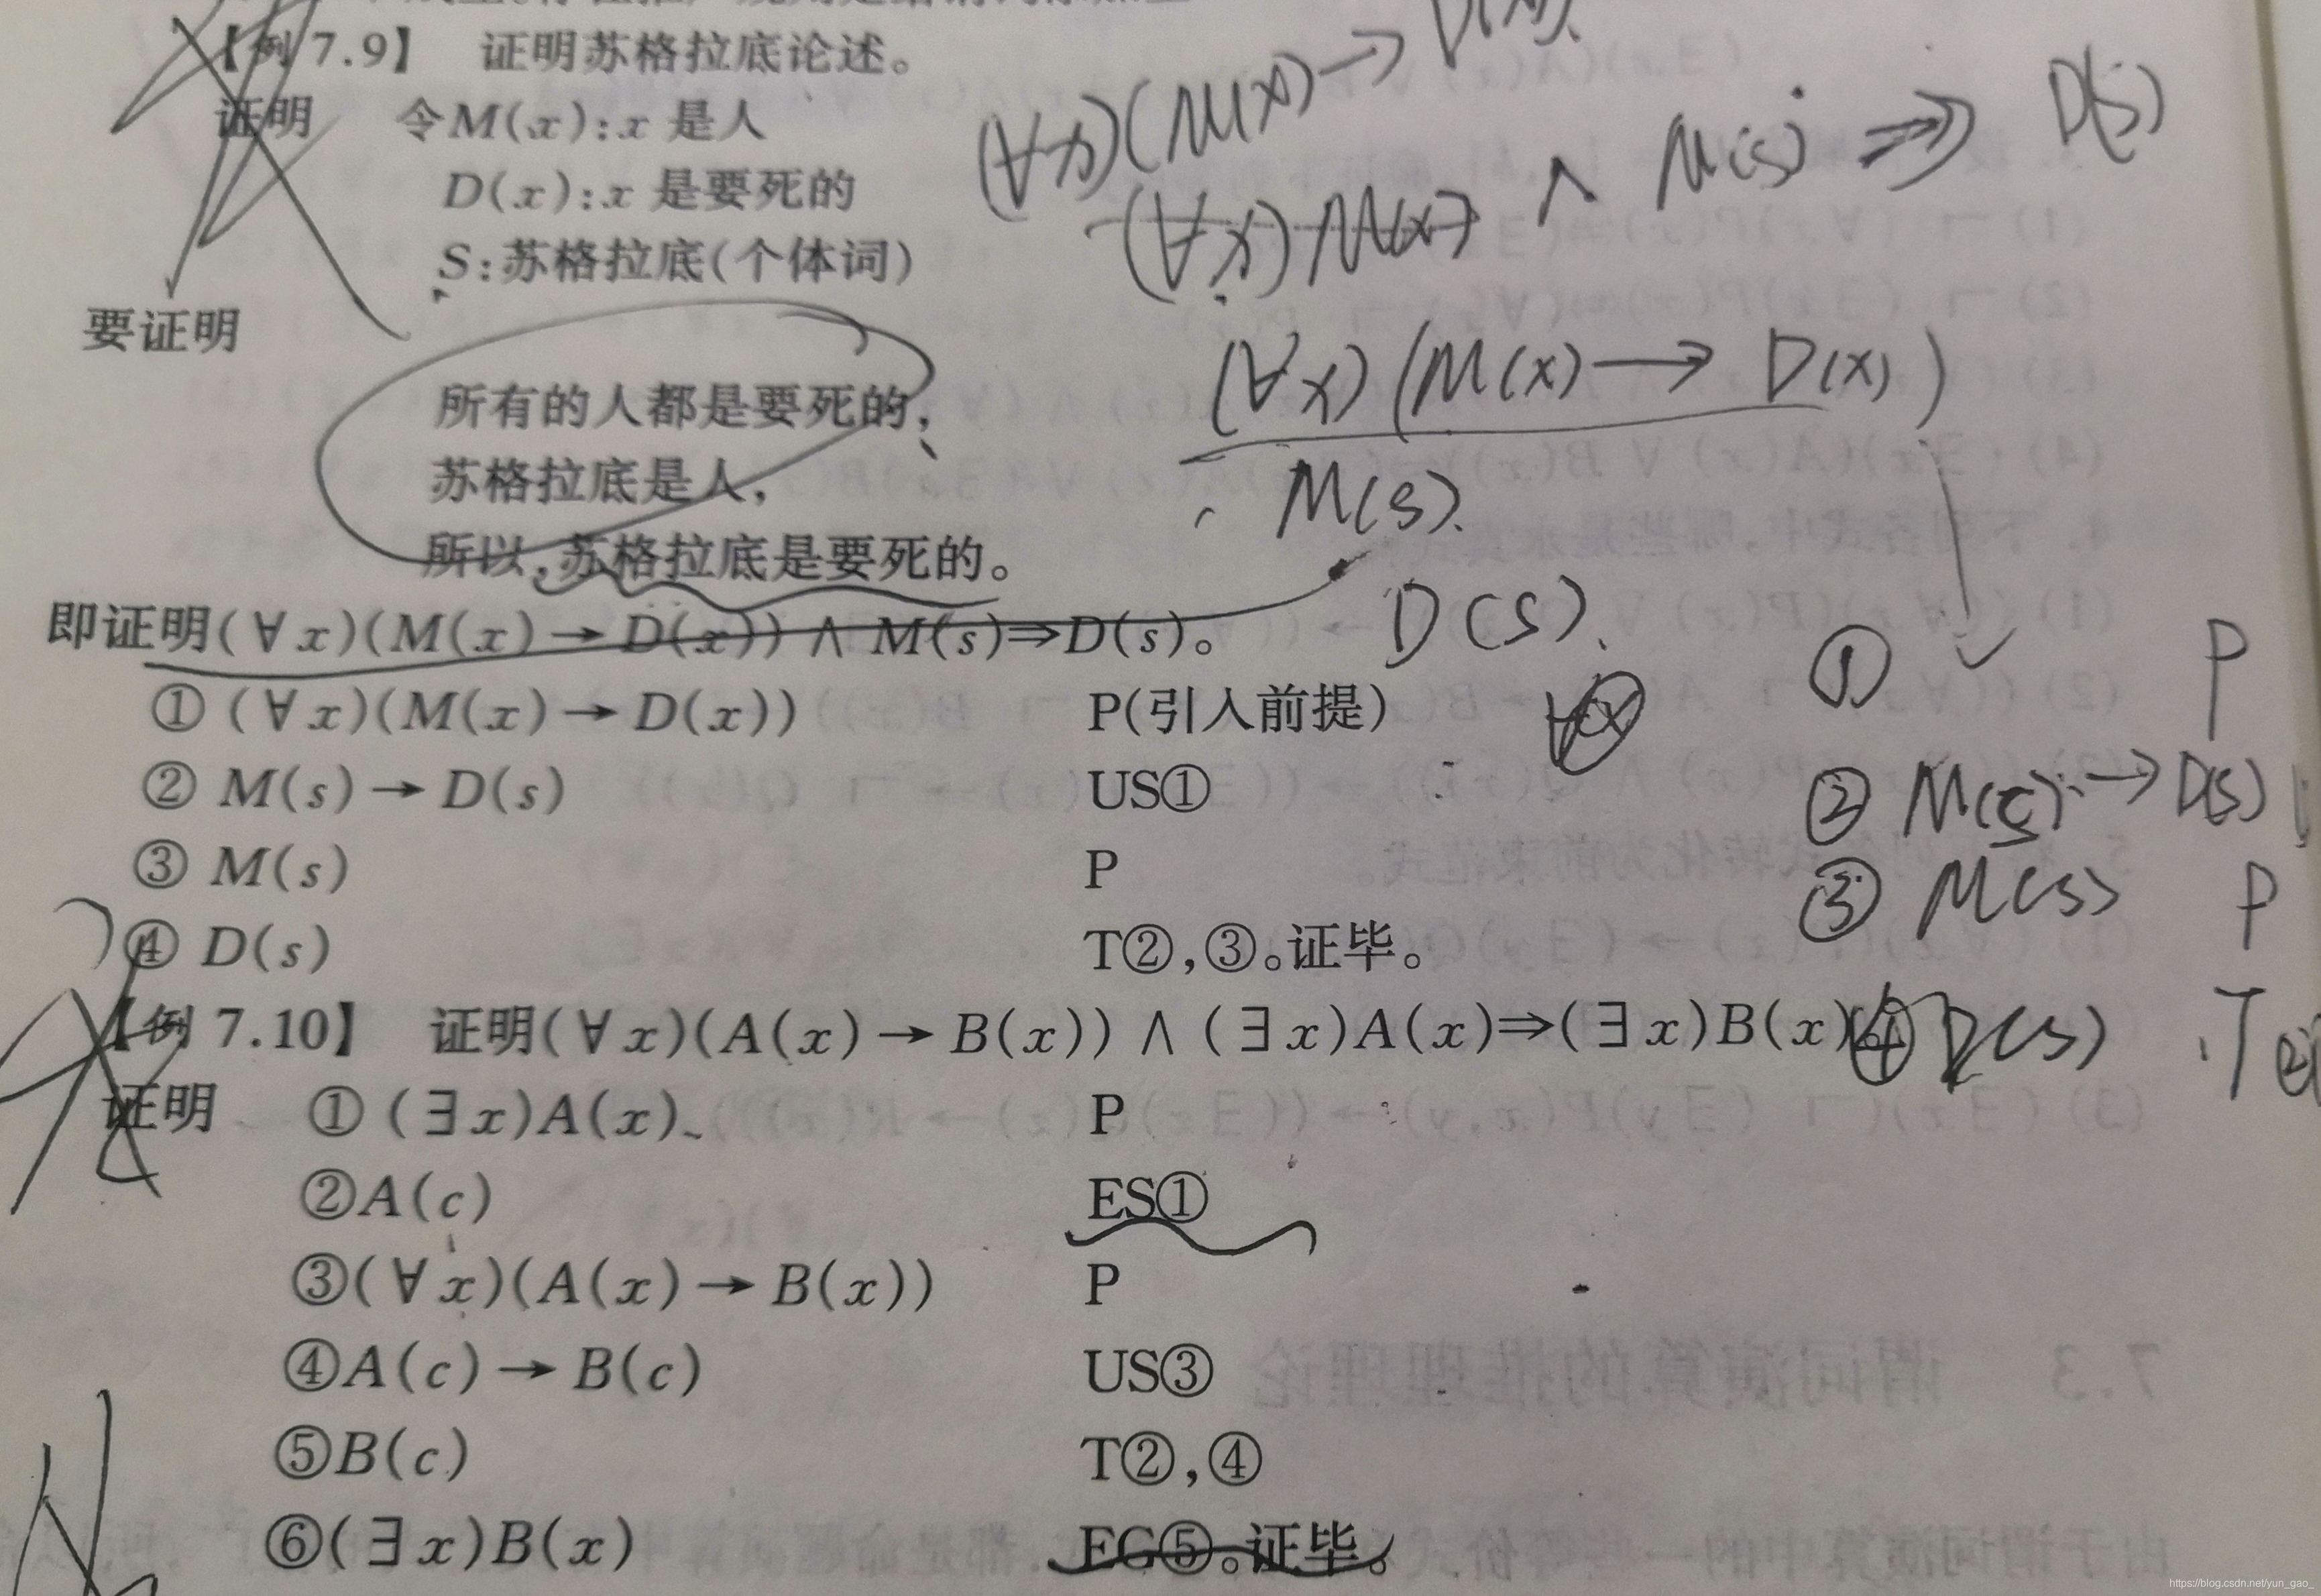 【例 7.9】 证明苏格拉底论述。
证明 令M(x):x 是人
D(x):x 是要死的
S:苏格拉底(个体词)
要证明
所有的人都是要死的,
苏格拉底是人,
所以,苏格拉底是要死的。
即证明(∀x)(M(x)→D(x))∧M(s)⇒D(s)。
①(∀x)(M(x)→D(x)) P(引入前提)
② M(s)→D(s) US①
③ M(s) P
④ D(s) T②,③。证毕。
【例 7.10】 证明(∀x)(A(x)→B(x))∧(∃x)A(x)⇒(∃x)B(x)
证明 ①(∃x)A(x) P
②A(c) ES①
③(∀x)(A(x)→B(x)) P
④A(c)→B(c) US③
⑤B(c) T②,④
⑥(∃x)B(x) EG⑤。证毕。
(∀x)(M(x)→D(x))
(∀x)M(x) ∧ M(s) ⇒ D(s)
(∀x)(M(x)→D(x))
M(s).
D(s).
① ✓ P
② M(s)→D(s)
③ M(s) P
④ D(s) T②
7.3 谓词演算的推理理论
https://blog.csdn.net/yun_gao_